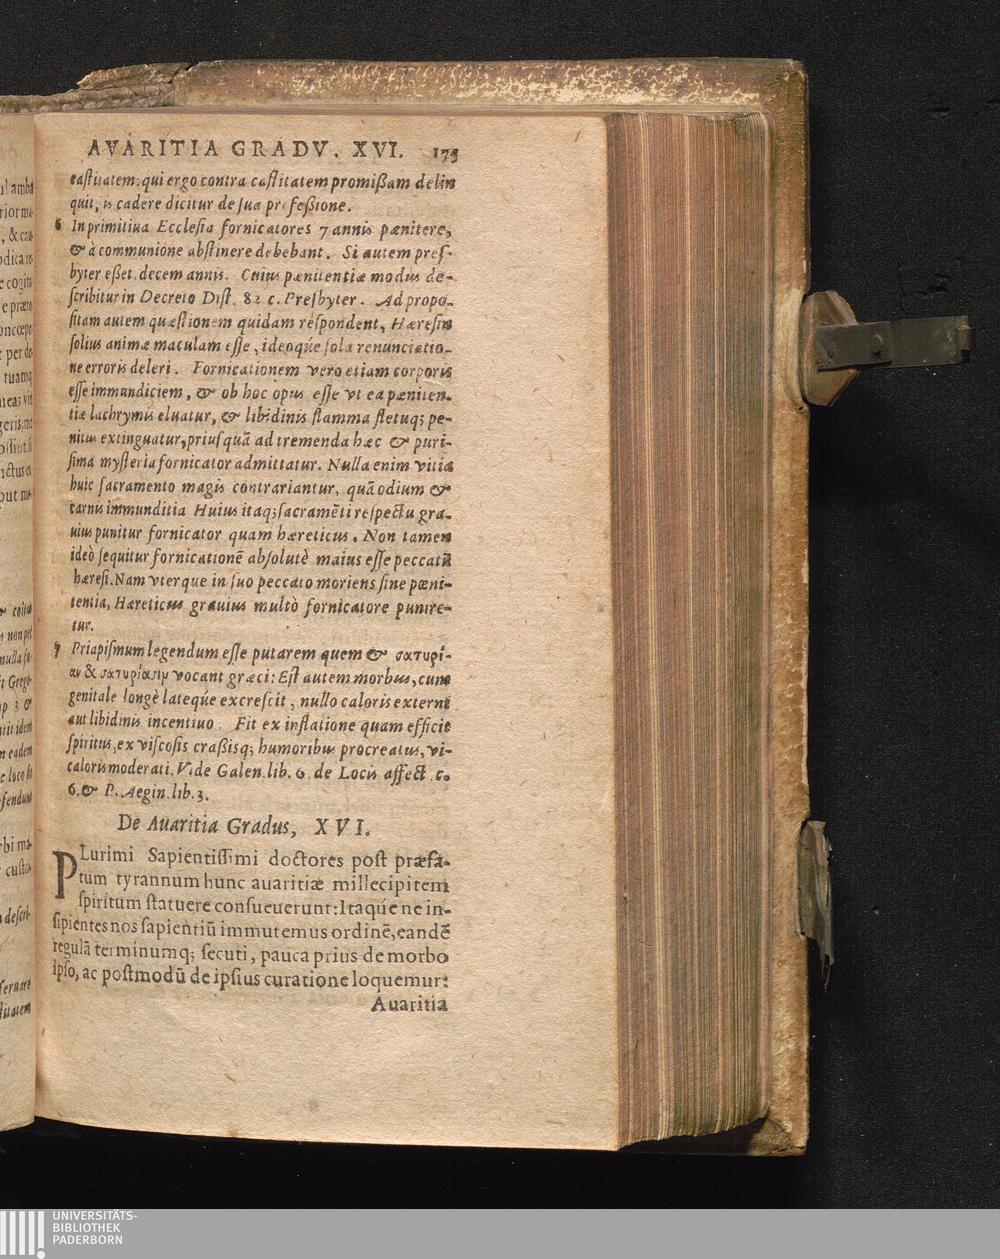 AVARITIA GRADV. XVI. 175
castitatem: qui ergo contra castitatem promißam delin
quit, is cadere dicitur de sua profeßione.
6 In primitiua Ecclesia fornicatores 7 annis pænitere,
& à communione abstinere debebant. Si autem pres-
byter eßet, decem annis. Cuius pænitentiæ modus de-
scribitur in Decreto Dist. 82 c. Presbyter. Ad propo-
sitam autem quæstionem quidam respondent, Hæresin
solius animæ maculam esse, ideoq́ue sola renunciatio-
ne erroris deleri. Fornicationem vero etiam corporis
esse immundiciem, & ob hoc opus esse vt ea pæniten-
tiæ lachrymis eluatur, & libidinis flamma fletuq; pe-
nitus extinguatur, priusquā ad tremenda hæc & puri-
sima mysteria fornicator admittatur. Nulla enim vitia
huic sacramento magis contrariantur, quā odium &
carnis immunditia Huius itaq; sacramēti respectu gra-
uius punitur fornicator quam hæreticus. Non tamen
ideò sequitur fornicationē absolutè maius esse peccatū
hæresi. Nam vterque in suo peccato moriens sine pœni-
tentia, Hæreticus grauius multò fornicatore punire-
tur.
7 Priapismum legendum esse putarem quem & σατυρί-
αν & σατυρίασιμ vocant græci: Est autem morbus, cum
genitale longè lateq́ue excrescit, nullo caloris externi
aut libidinis incentiuo. Fit ex inflatione quam efficit
spiritus, ex viscosis craßisq; humoribus procreatus, vi-
caloris moderati. Vide Galen. lib. 6. de Locis affect. c.
6. & P. Aegin. lib. 3.
De Avaritia Gradus, XVI.
PLurimi Sapientissimi doctores post præfa-
tum tyrannum hunc avaritiæ millecipitem
spiritum statuere consueuerunt: Itaq́ue ne in-
sipientes nos sapientiū immutemus ordinē, eandē
regulā terminumq; secuti, pauca prius de morbo
ipso, ac postmodū de ipsius curatione loquemur:
Avaritia
UNIVERSITÄTS-
BIBLIOTHEK
PADERBORN